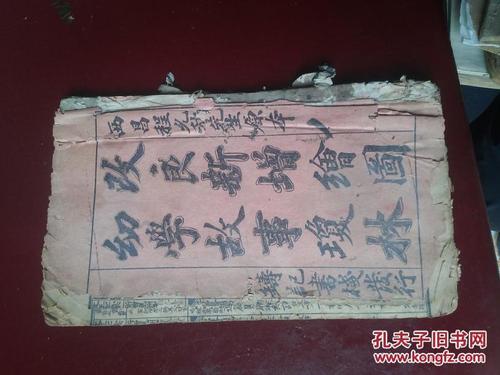 西昌程允升先生原本
改良新增繪圖
幼學故事瓊林
鑄記書棧發行
孔夫子旧书网
www.kongfz.com